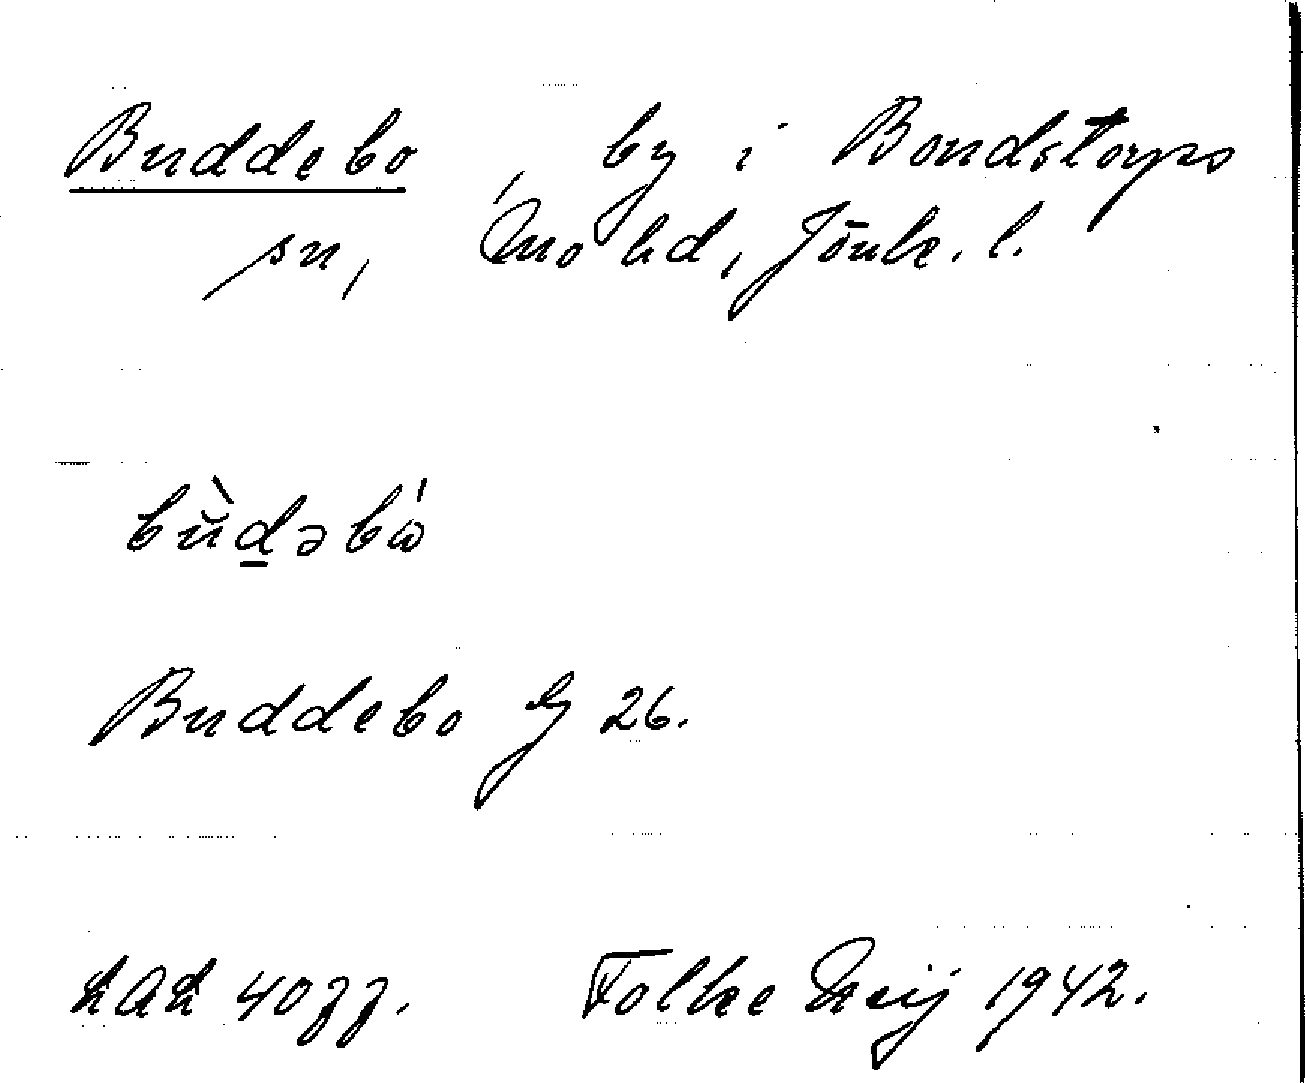 Buddebo, by i Bondstorps
sn, Mo hd, Jönk. l.
bùdəbó
Buddebo G 26.
LAL 4077.
Folke Meij 1942.